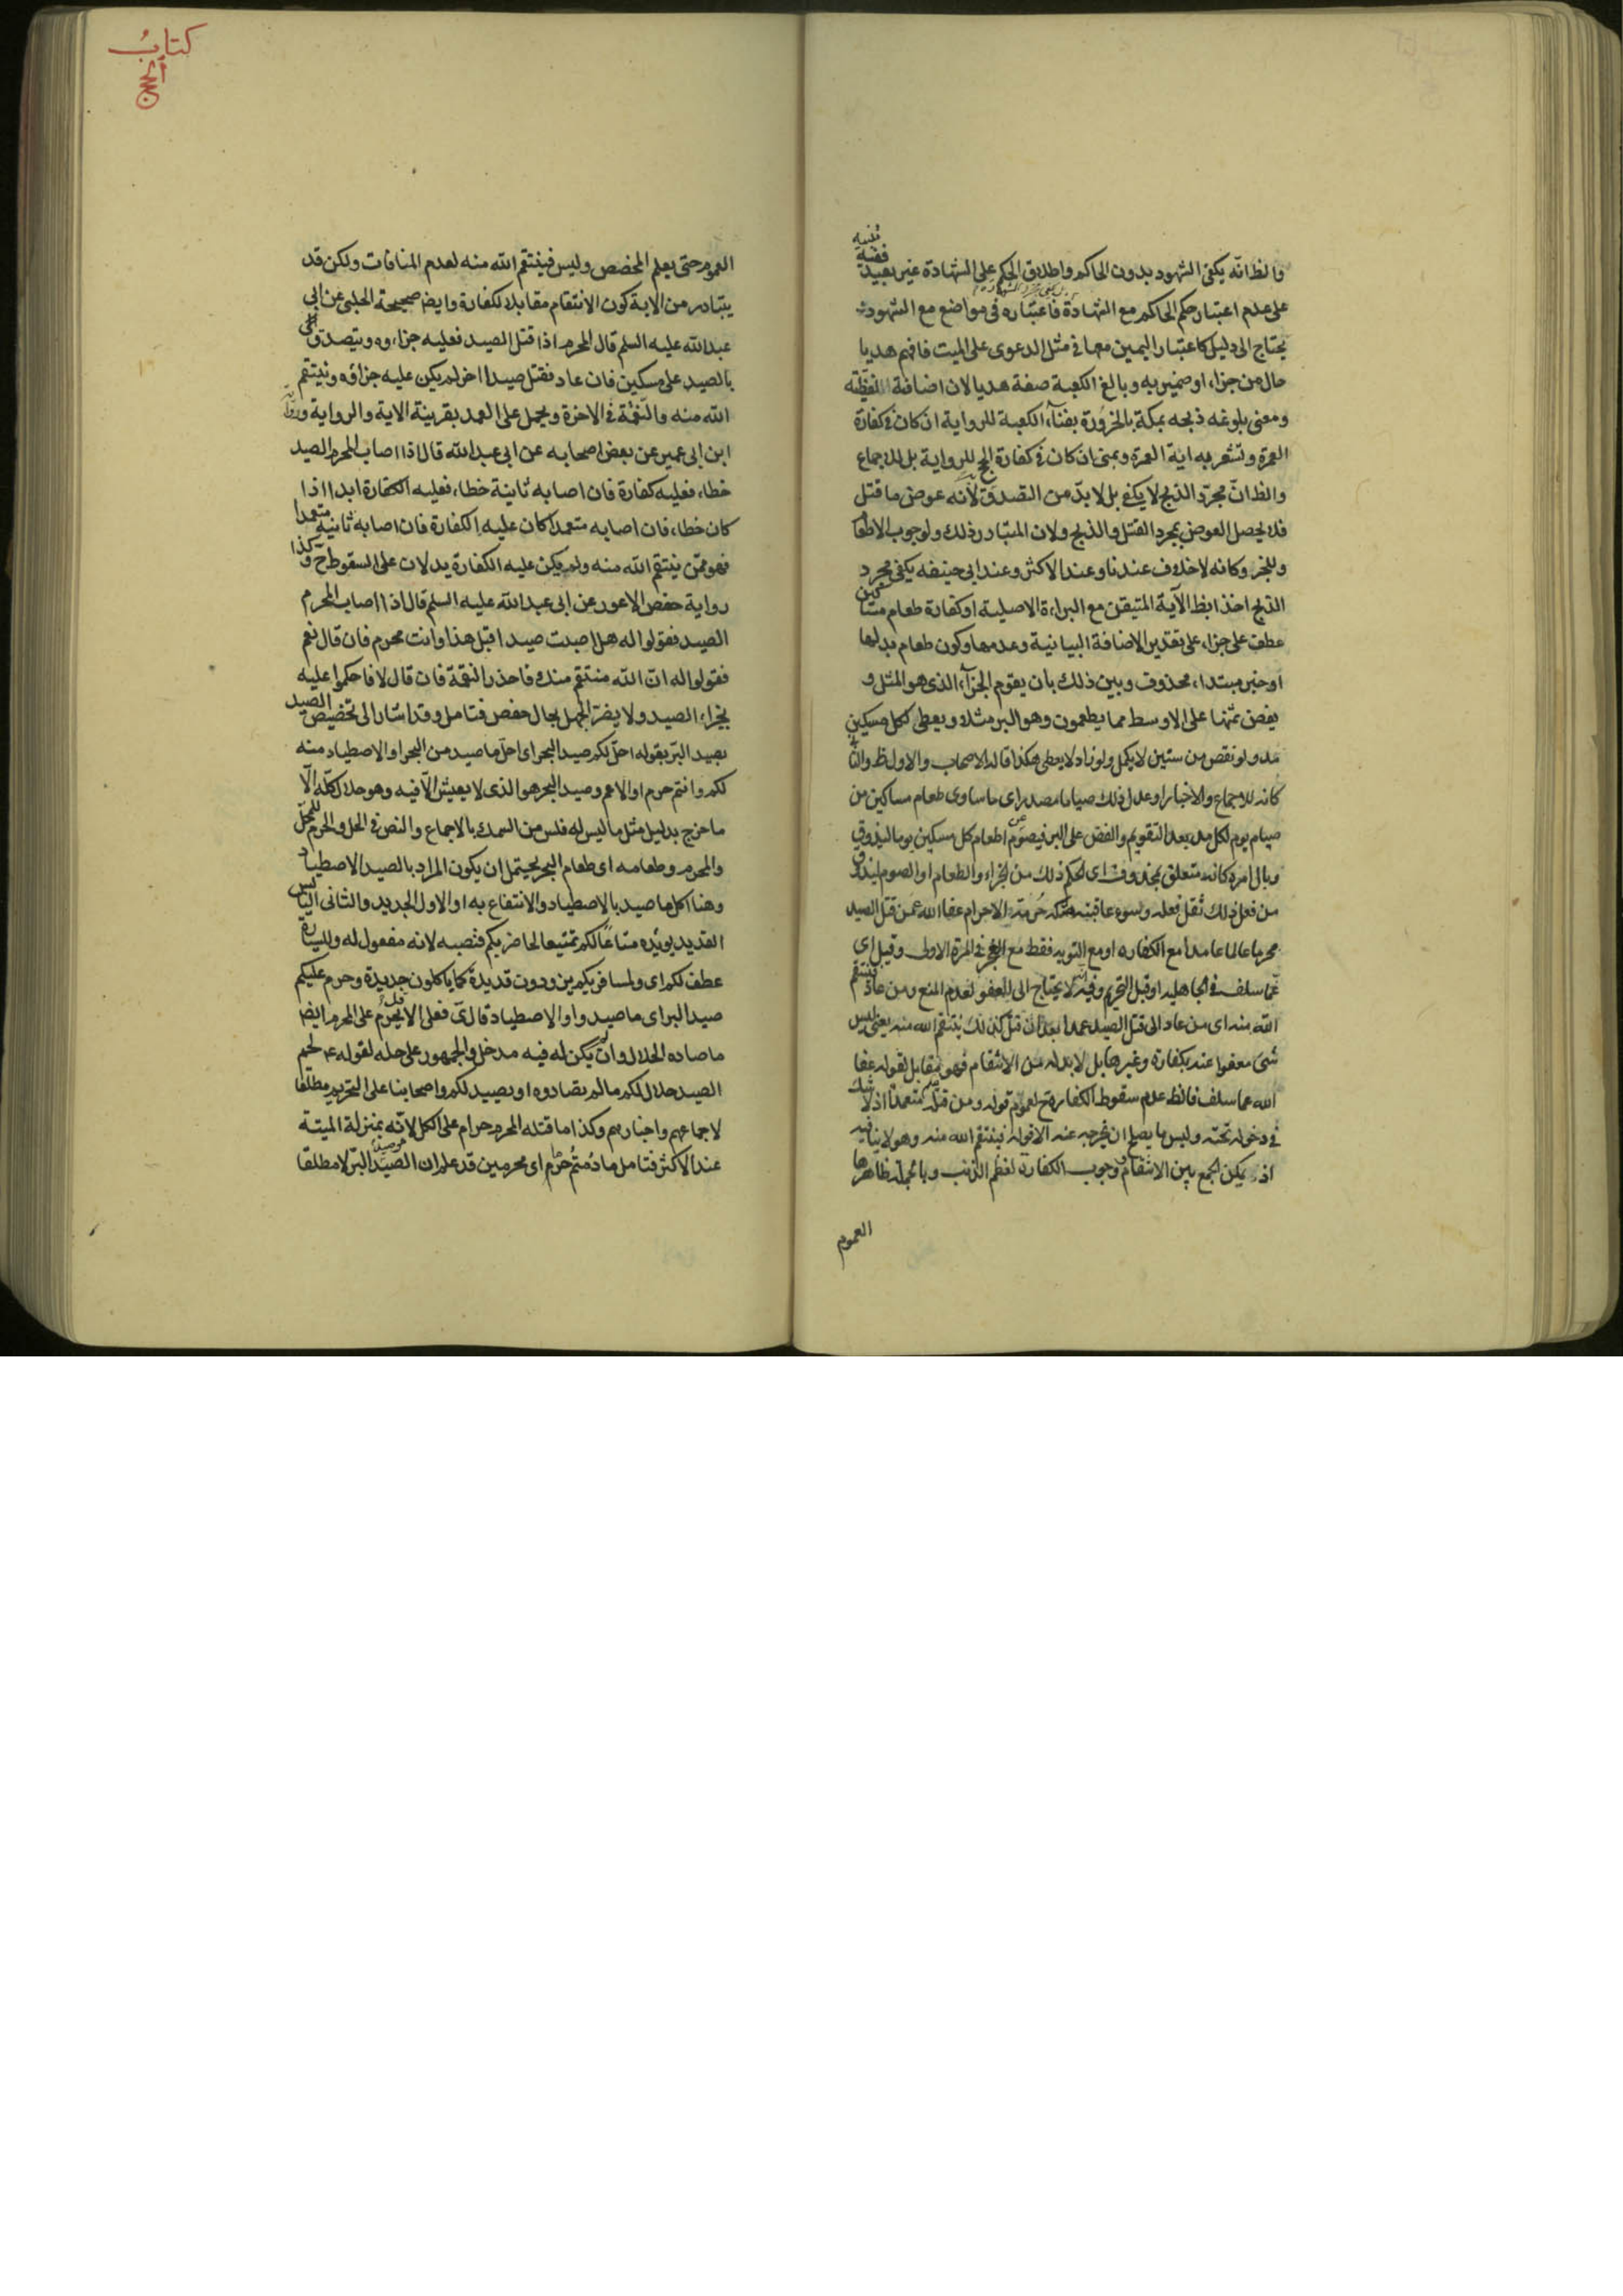 والظ انّه يكفى الشهود بدون الحاكم واطلاق الحكم على الشهادة غير بعيد ففيه تنبيه
على عدم اعتبار حكم الحاكم مع الشهادة فاعتباره فى مواضع مع الشهود
يحتاج الى دليل كاعتبار اليمين معها فى مثل الدعوى على الميت فافهم هديا
حال من جزاء او ضمير به وبالغ الكعبة صفة هديا لان اضافة لفظية
ومعنى بلوغه ذبحه بمكة بالحزورة بفناء الكعبة للرواية ان كان فى كفارة
العمرة وتشعر به اية العمرة وبمنى ان كان فى كفارة الحج للرواية بل للاجماع
والظ انّ مجرّد الذبح لا يكفى بل لا بدّ من التصدق لانه عوض ما قتل
فلا يحصل العوض بمجرد القتل والذبح ولان المتبادر ذلك ولوجوب الاطعام
وللخبر وكانه لا خلاف عندنا وعند الاكثر وعند ابى حنيفه يكفى مجرد
الذبح اخذا بظ الآية المتيقن مع البراءة الاصلية او كفارة طعام مساكين
عطف على جزاء على تقدير الاضافة البيانية وعدمها وكون طعام بدلها
او خبر مبتداء محذوف وبين ذلك بان يقوم الجزاء الذى هو المثل و
يفض ثمنها على الاوسط مما يطعمون وهو البر مثلا ويعطى كل مسكين
مد ولو نقص من ستين لا يكمل ولو زاد لا يعطى هكذا قاله الاصحاب والاول ظ والثانى
كانه للاجماع والاخبار او عدل ذلك صياما مصدر اى ما ساوى طعام مساكين من
صيام يوم لكل مد بعد التقويم والفض على البر فيصوم عن اطعام كل مسكين يوما ليذوق
وبال امره كانه متعلق بمحذوف اى الحكم ذلك من الجزاء والطعام او الصوم ليذوق
من فعل ذلك ثقل فعله وسوء عاقبته هتكه حرمة الاحرام عفا الله عمن قتل الصيد
محرما عالما عامدا مع الكفاره او مع التوبه فقط مع العجز فى المرة الاولى وقيل اى
عمّا سلف فى الجاهليه او قبل التحريم وفيه انه لا يحتاج الى العفو لعدم المنع ومن عاد فينتقم
الله منه اى من عاد الى قتل الصيد عمدا بعد ان قتل كذلك ينتقم الله منه يعنى ليس
شئ معفوا عنه بكفارة وغيرها بل لا بد له من الانتقام فهو مقابل لقوله عفا
الله عما سلف فالظ عدم سقوط الكفارة ح لعموم قوله ومن قتله متعمدا اذ لا شك
فى دخوله تحته وليس ما يصلح ان يخرجه عنه الا قوله فينتقم الله منه وهو لا ينافيه
اذ يمكن الجمع بين الانتقام ووجوب الكفارة لعظم الذنب وبالجملة ظاهرها
العموم
كتابُ
الحج
العموم حتى يعلم المخصص وليس فينتقم الله منه لعدم المنافات ولكن قد
يتبادر من الاية كون الانتقام مقابلا للكفارة وايض صحيحة الحلبى عن ابى
عبد الله عليه السلم قال المحرم اذا قتل الصيد فعليه جزاءوه ويتصدق
بالصيد على مسكين فان عاد فقتل صيدا اخر لم يكن عليه جزاؤه وينتقم
الله منه والنقمة فى الاخرة ويحمل على العمد بقرينة الاية والرواية ورواية
ابن ابى عمير عن بعض اصحابه عن ابى عبد الله قال اذا اصاب المحرم الصيد
خطاء فعليه كفارة فان اصابه ثانية خطاء فعليه الكفارة ابدا اذا
كان خطاء فان اصابه متعمدا كان عليه الكفارة فان اصابه ثانية متعمدا
فهو ممّن ينتقم الله منه ولم يكن عليه الكفارة يدلان على السقوط ح وكذا
رواية حفص الاعور عن ابى عبد الله عليه السلم قال اذا اصاب المحرم
الصيد فقولوا له هل اصبت صيدا قبل هذا وانت محرم فان قال نعم
فقولوا له انّ الله منتقم منك فاحذر النقمة فان قال لا فاحكموا عليه
بجزاء الصيد ولا يضرّ الجهل بحال حفص فتامل وقد اشار الى تخصيص الصيد
بصيد البرّ بقوله احلّ لكم صيد البحر اى احلّ ما صيد من البحر او الاصطياد منه
لكم وانتم حرم او الاعم وصيد البحر هو الذى لا يعيش الّا فيه وهو حلال كلّه الّا
ما خرج بدليل مثل ما ليس له فلس من السمك بالاجماع والنص فى الحل والحرم للمحلّ
والمحرم وطعامه اى طعام البحر يحتمل ان يكون المراد بالصيد الاصطياد
وهنا اكل ما صيد بالاصطياد والانتفاع به او الاول الجديد والثانى اليابس
القديد يويّده متاعًا لكم تمتيعا لحاضريكم فنصبه لانه مفعول له وللسيارة
عطف لكم اى ولمسافريكم يتزودون قديدة كما ياكلون جديدة وحرم عليكم
صيد البر اى ما صيد او الاصطياد قال ى فعلى الاول يحرُم على المحرم ايضا
ما صاده الحلال وان لم يكن له فيه مدخل والجمهور على حله لقوله عم لحم
الصيد حلال لكم ما لم تصادوه او يصيد لكم واصحابنا على التحريم مطلقا
لاجماعهم واخبارهم وكذا ما قتله المحرم حرام على الكل لانّه بمنزلة الميتة
عند الاكثر فتامل ما دُمتُم حُرُم اى محرمين قد علم ان الصيد هو صيد البرّ لا مطلقا